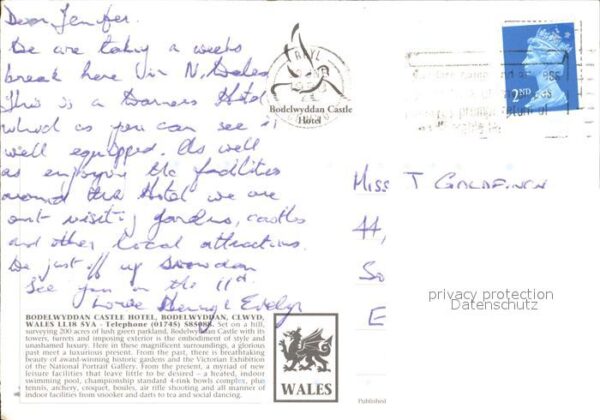 Dear Jenifer.
We are taking a weeks
break here in N. Wales
This is a Warners Hotel
which as you can see is
well equipped. As well
as enjoying the facilities
around the Hotel we are
out visiting gardens, castles
and other local attractions.
We just off up Snowdon
See you on the 11th.
Love Henry & Evelyn
RHYL
Bodelwyddan Castle
Hotel
2ND
Miss T
44,
So
E
privacy protection
Datenschutz
BODELWYDDAN CASTLE HOTEL, BODELWYDDAN, CLWYD,
WALES LL18 5YA - Telephone (01745) 585088. Set on a hill,
surveying 200 acres of lush green parkland, Bodelwyddan Castle with its
towers, turrets and imposing exterior is the embodiment of style and
unashamed luxury. Here in these magnificent surroundings, a glorious
past meet a luxurious present. From the past, there is breathtaking
beauty of award-winning historic gardens and the Victorian Exhibition
of the National Portrait Gallery. From the present, a myriad of new
leisure facilities that leave little to be desired – a heated, indoor
swimming pool, championship standard 4-rink bowls complex, plus
tennis, archery, croquet, boules, air rifle shooting and all manner of
indoor facilities from snooker and darts to tea and social dancing.
WALES
Published